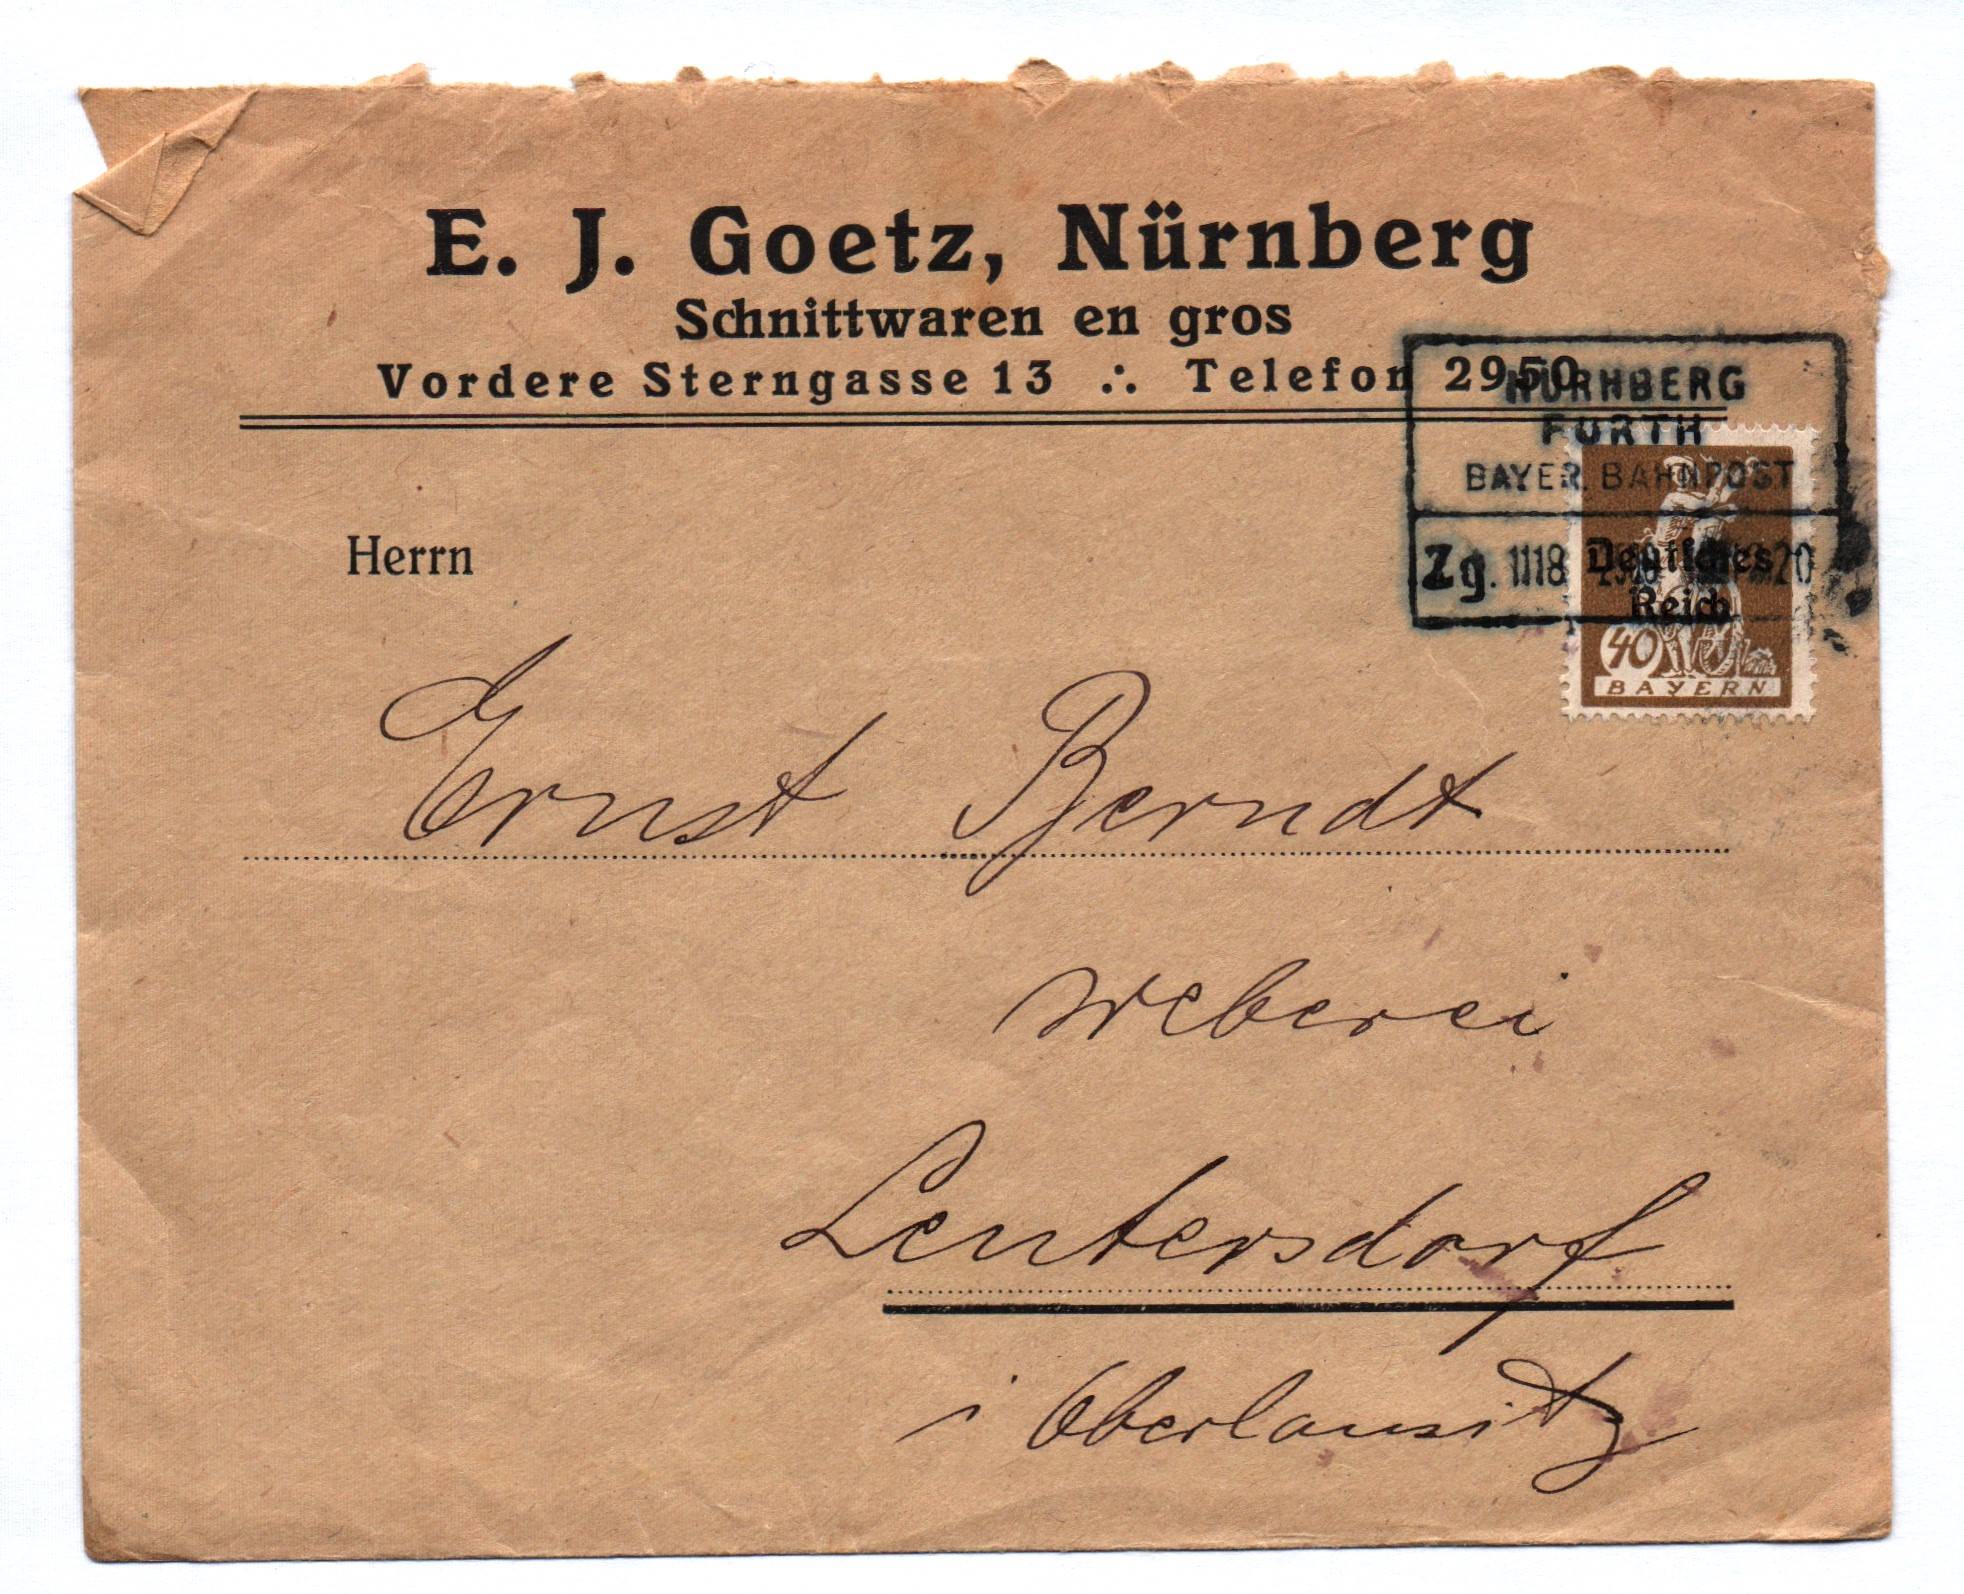 E. J. Goetz, Nürnberg
Schnittwaren en gros
Vordere Sterngasse 13 ∴ Telefon 2950
NÜRNBERG
FÜRTH
BAYER. BAHNPOST
Zg. 1118
20
Deutsches
Reich
40
BAYERN
Herrn
Ernst Berndt
Weberei
Leutersdorf
i Oberlausitz